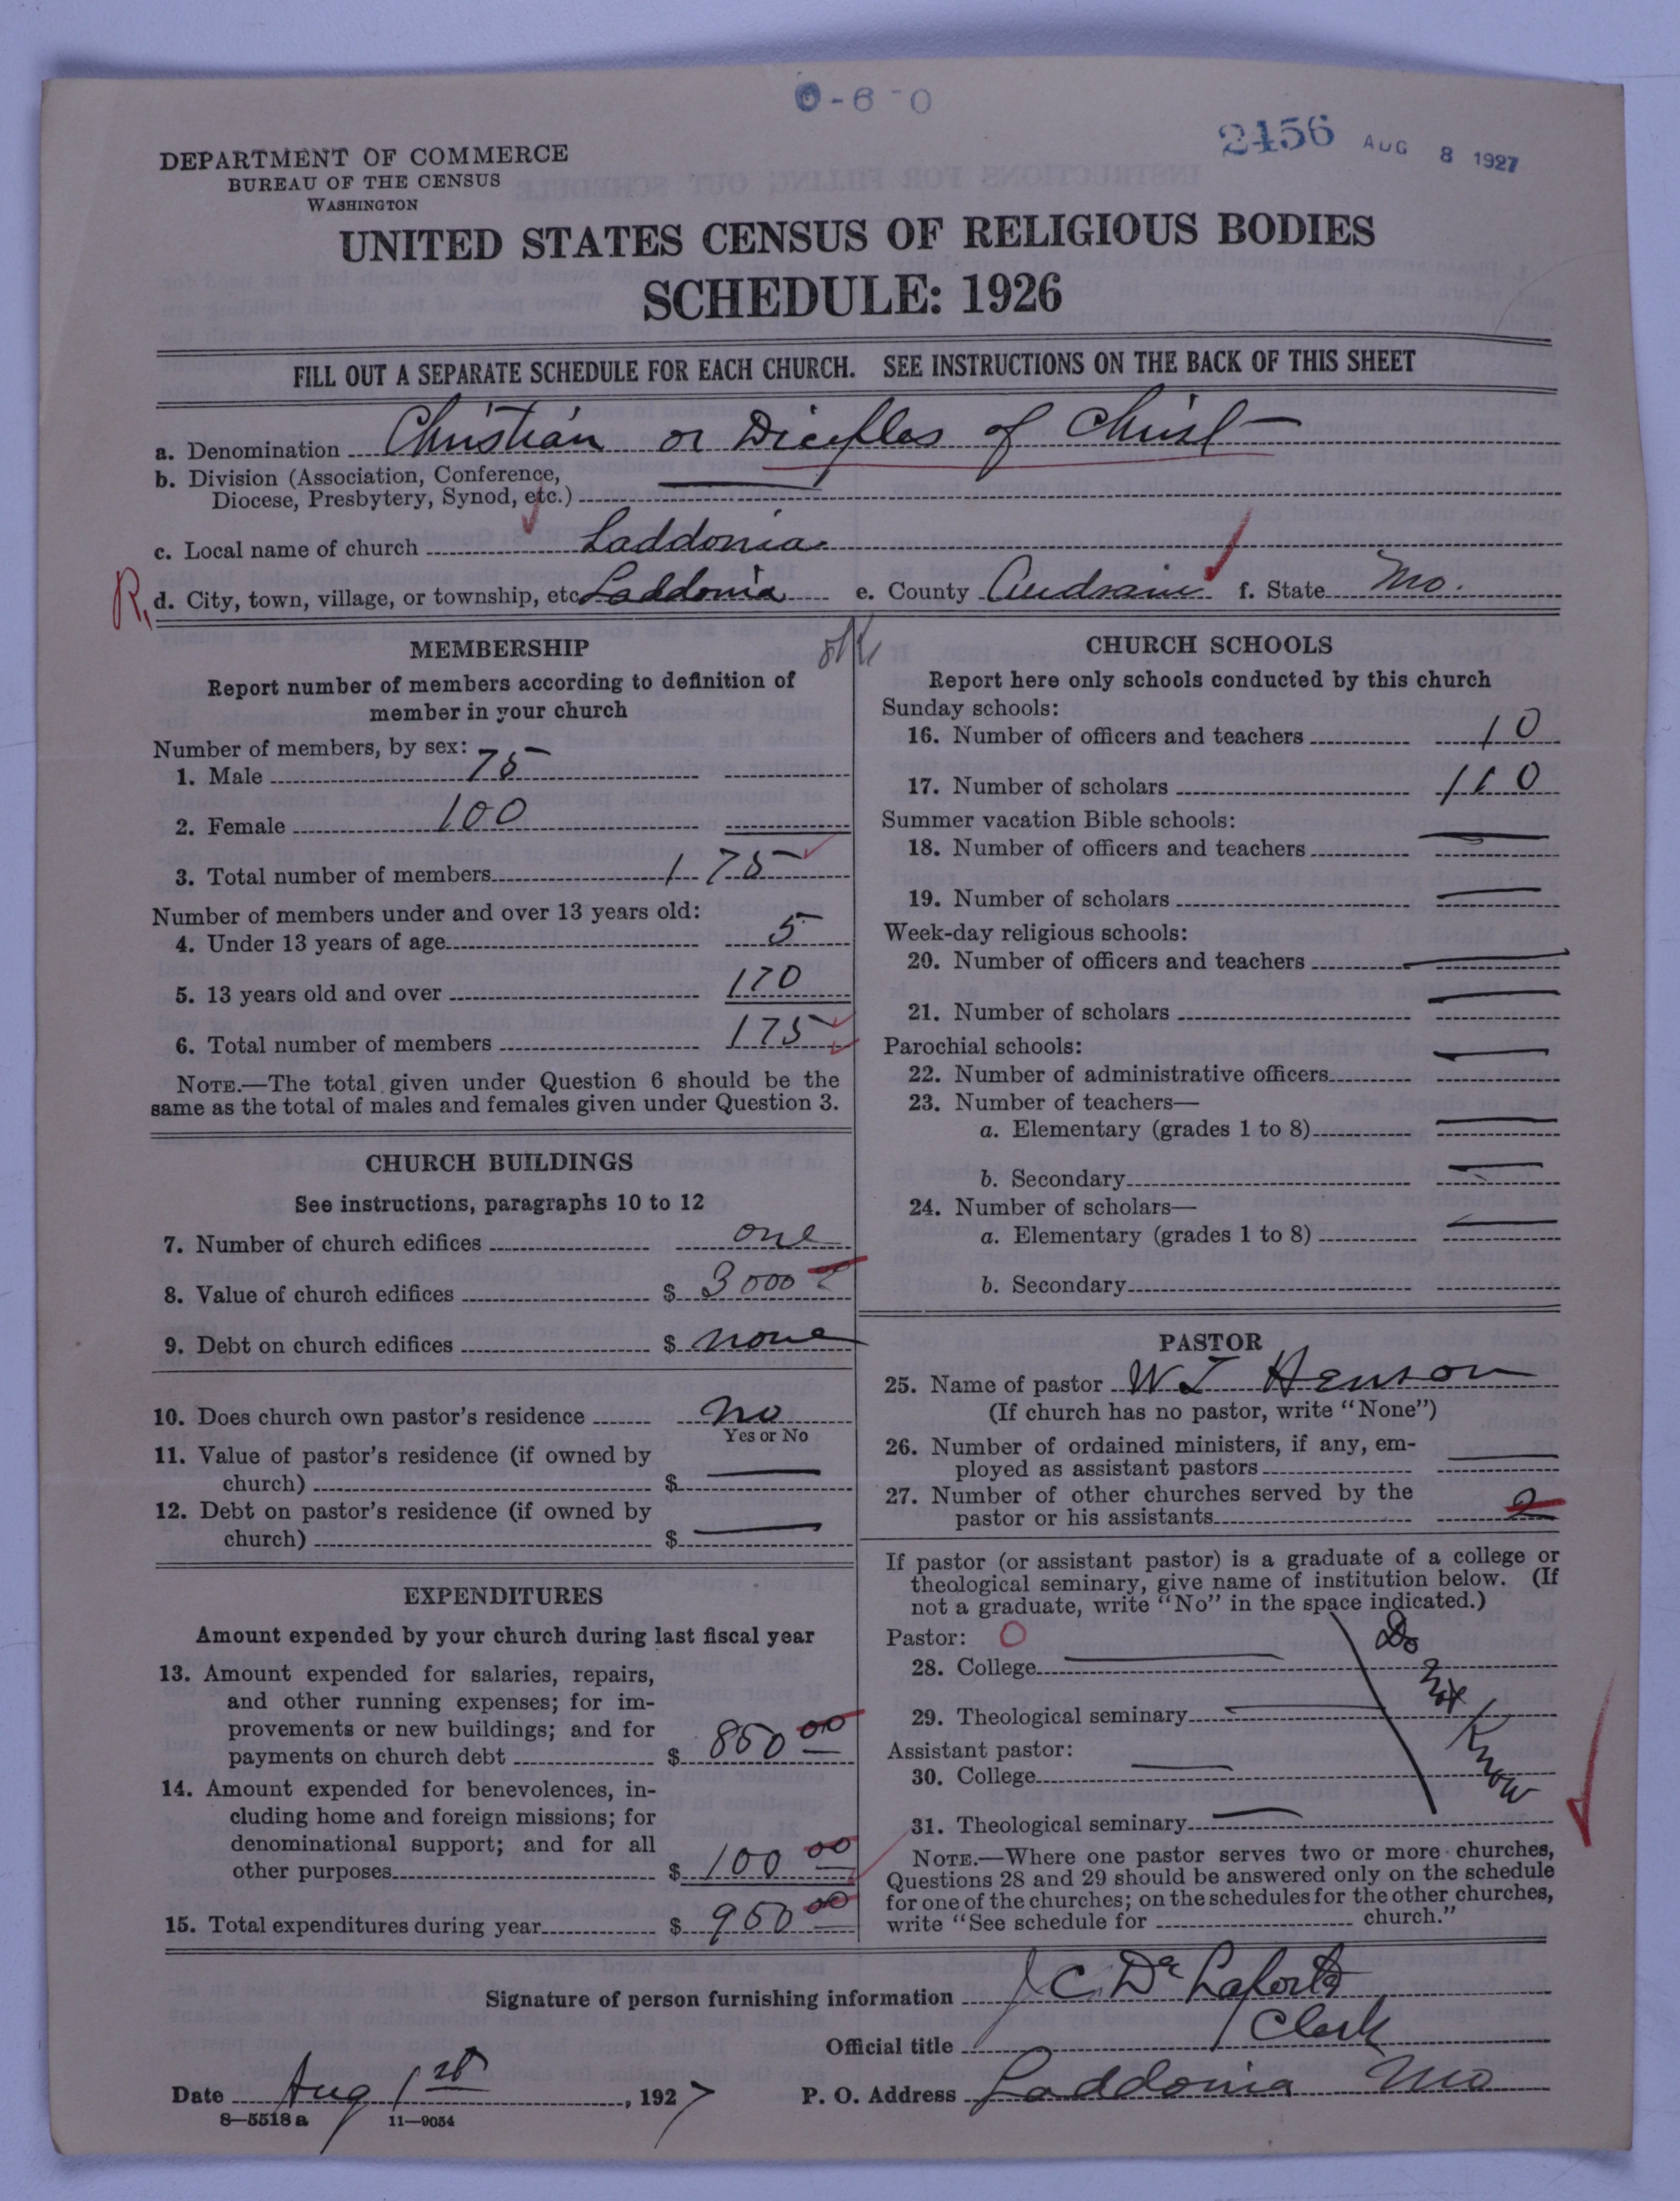 0-6-0
2456 AUG 8 1927
DEPARTMENT OF COMMERCE
BUREAU OF THE CENSUS
WASHINGTON
UNITED STATES CENSUS OF RELIGIOUS BODIES
SCHEDULE: 1926
FILL OUT A SEPARATE SCHEDULE FOR EACH CHURCH. SEE INSTRUCTIONS ON THE BACK OF THIS SHEET
a. Denomination Christian or Diciples of Christ
b. Division (Association, Conference,
Diocese, Presbytery, Synod, etc.)
c. Local name of church Laddonia
R. d. City, town, village, or township, etc. Laddonia e. County Audrain f. State Mo.
MEMBERSHIP
Report number of members according to definition of
member in your church
Number of members, by sex:
1. Male 75
2. Female 100
3. Total number of members 175
Number of members under and over 13 years old:
4. Under 13 years of age 5
5. 13 years old and over 170
6. Total number of members 175
NOTE.—The total given under Question 6 should be the
same as the total of males and females given under Question 3.
CHURCH BUILDINGS
See instructions, paragraphs 10 to 12
7. Number of church edifices one
8. Value of church edifices $ 3000
9. Debt on church edifices $ none
10. Does church own pastor's residence no
Yes or No
11. Value of pastor's residence (if owned by
church) $
12. Debt on pastor's residence (if owned by
church) $
EXPENDITURES
Amount expended by your church during last fiscal year
13. Amount expended for salaries, repairs,
and other running expenses; for im-
provements or new buildings; and for
payments on church debt $ 850 00
14. Amount expended for benevolences, in-
cluding home and foreign missions; for
denominational support; and for all
other purposes $ 100 00
15. Total expenditures during year $ 950 00
ok
CHURCH SCHOOLS
Report here only schools conducted by this church
Sunday schools:
16. Number of officers and teachers 10
17. Number of scholars 110
Summer vacation Bible schools:
18. Number of officers and teachers
19. Number of scholars
Week-day religious schools:
20. Number of officers and teachers
21. Number of scholars
Parochial schools:
22. Number of administrative officers
23. Number of teachers—
a. Elementary (grades 1 to 8)
b. Secondary
24. Number of scholars—
a. Elementary (grades 1 to 8)
b. Secondary
PASTOR
25. Name of pastor W T Henson
(If church has no pastor, write "None")
26. Number of ordained ministers, if any, em-
ployed as assistant pastors
27. Number of other churches served by the
pastor or his assistants 2
If pastor (or assistant pastor) is a graduate of a college or
theological seminary, give name of institution below. (If
not a graduate, write "No" in the space indicated.)
Pastor: O
28. College
29. Theological seminary
Assistant pastor:
30. College
31. Theological seminary
Do Not Know
NOTE.—Where one pastor serves two or more churches,
Questions 28 and 29 should be answered only on the schedule
for one of the churches; on the schedules for the other churches,
write "See schedule for church."
Signature of person furnishing information J C De Laforte
Official title Clerk
Date Aug 1st, 1927 P. O. Address Laddonia Mo
8—5518 a 11—9054